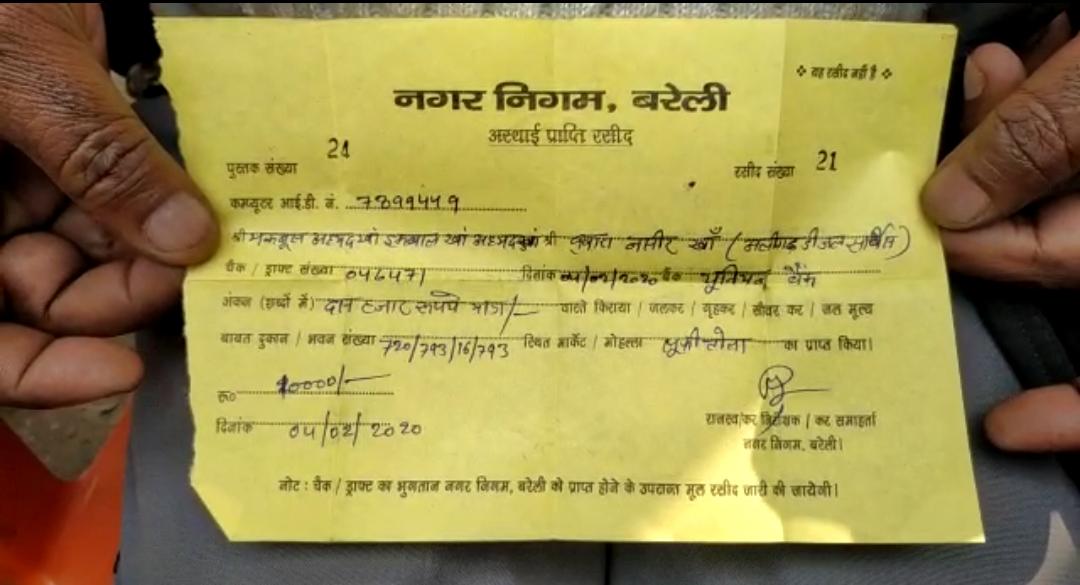 ❖ यह रसीद नहीं है ❖
नगर निगम, बरेली
अस्थाई प्राप्ति रसीद
पुस्तक संख्या 21 रसीद संख्या 21
कम्प्यूटर आई.डी. नं. 7399449
श्री मकबूल अहमद खां इकबाल खां श्री नसीर खाँ (अलीगढ़ डीजल सर्विस)
चैक / ड्राफ्ट संख्या 046471 दिनांक 04/02/2020 बैंक यूनियन बैंक
अंकन (शब्दों में) हजार रूपये मात्र/- वास्ते किराया / जलकर / गृहकर / सीवर कर / जल मूल्य
बाबत दुकान / भवन संख्या 720/793/16/793 स्थित मार्केट / मोहल्ला सूफी टोला का प्राप्त किया।
रू० 10000/-
दिनांक 04/02/2020
राजस्व/कर निरीक्षक / कर समाहर्ता
नगर निगम, बरेली।
नोट : चैक / ड्राफ्ट का भुगतान नगर निगम, बरेली को प्राप्त होने के उपरान्त मूल रसीद जारी की जायेगी।